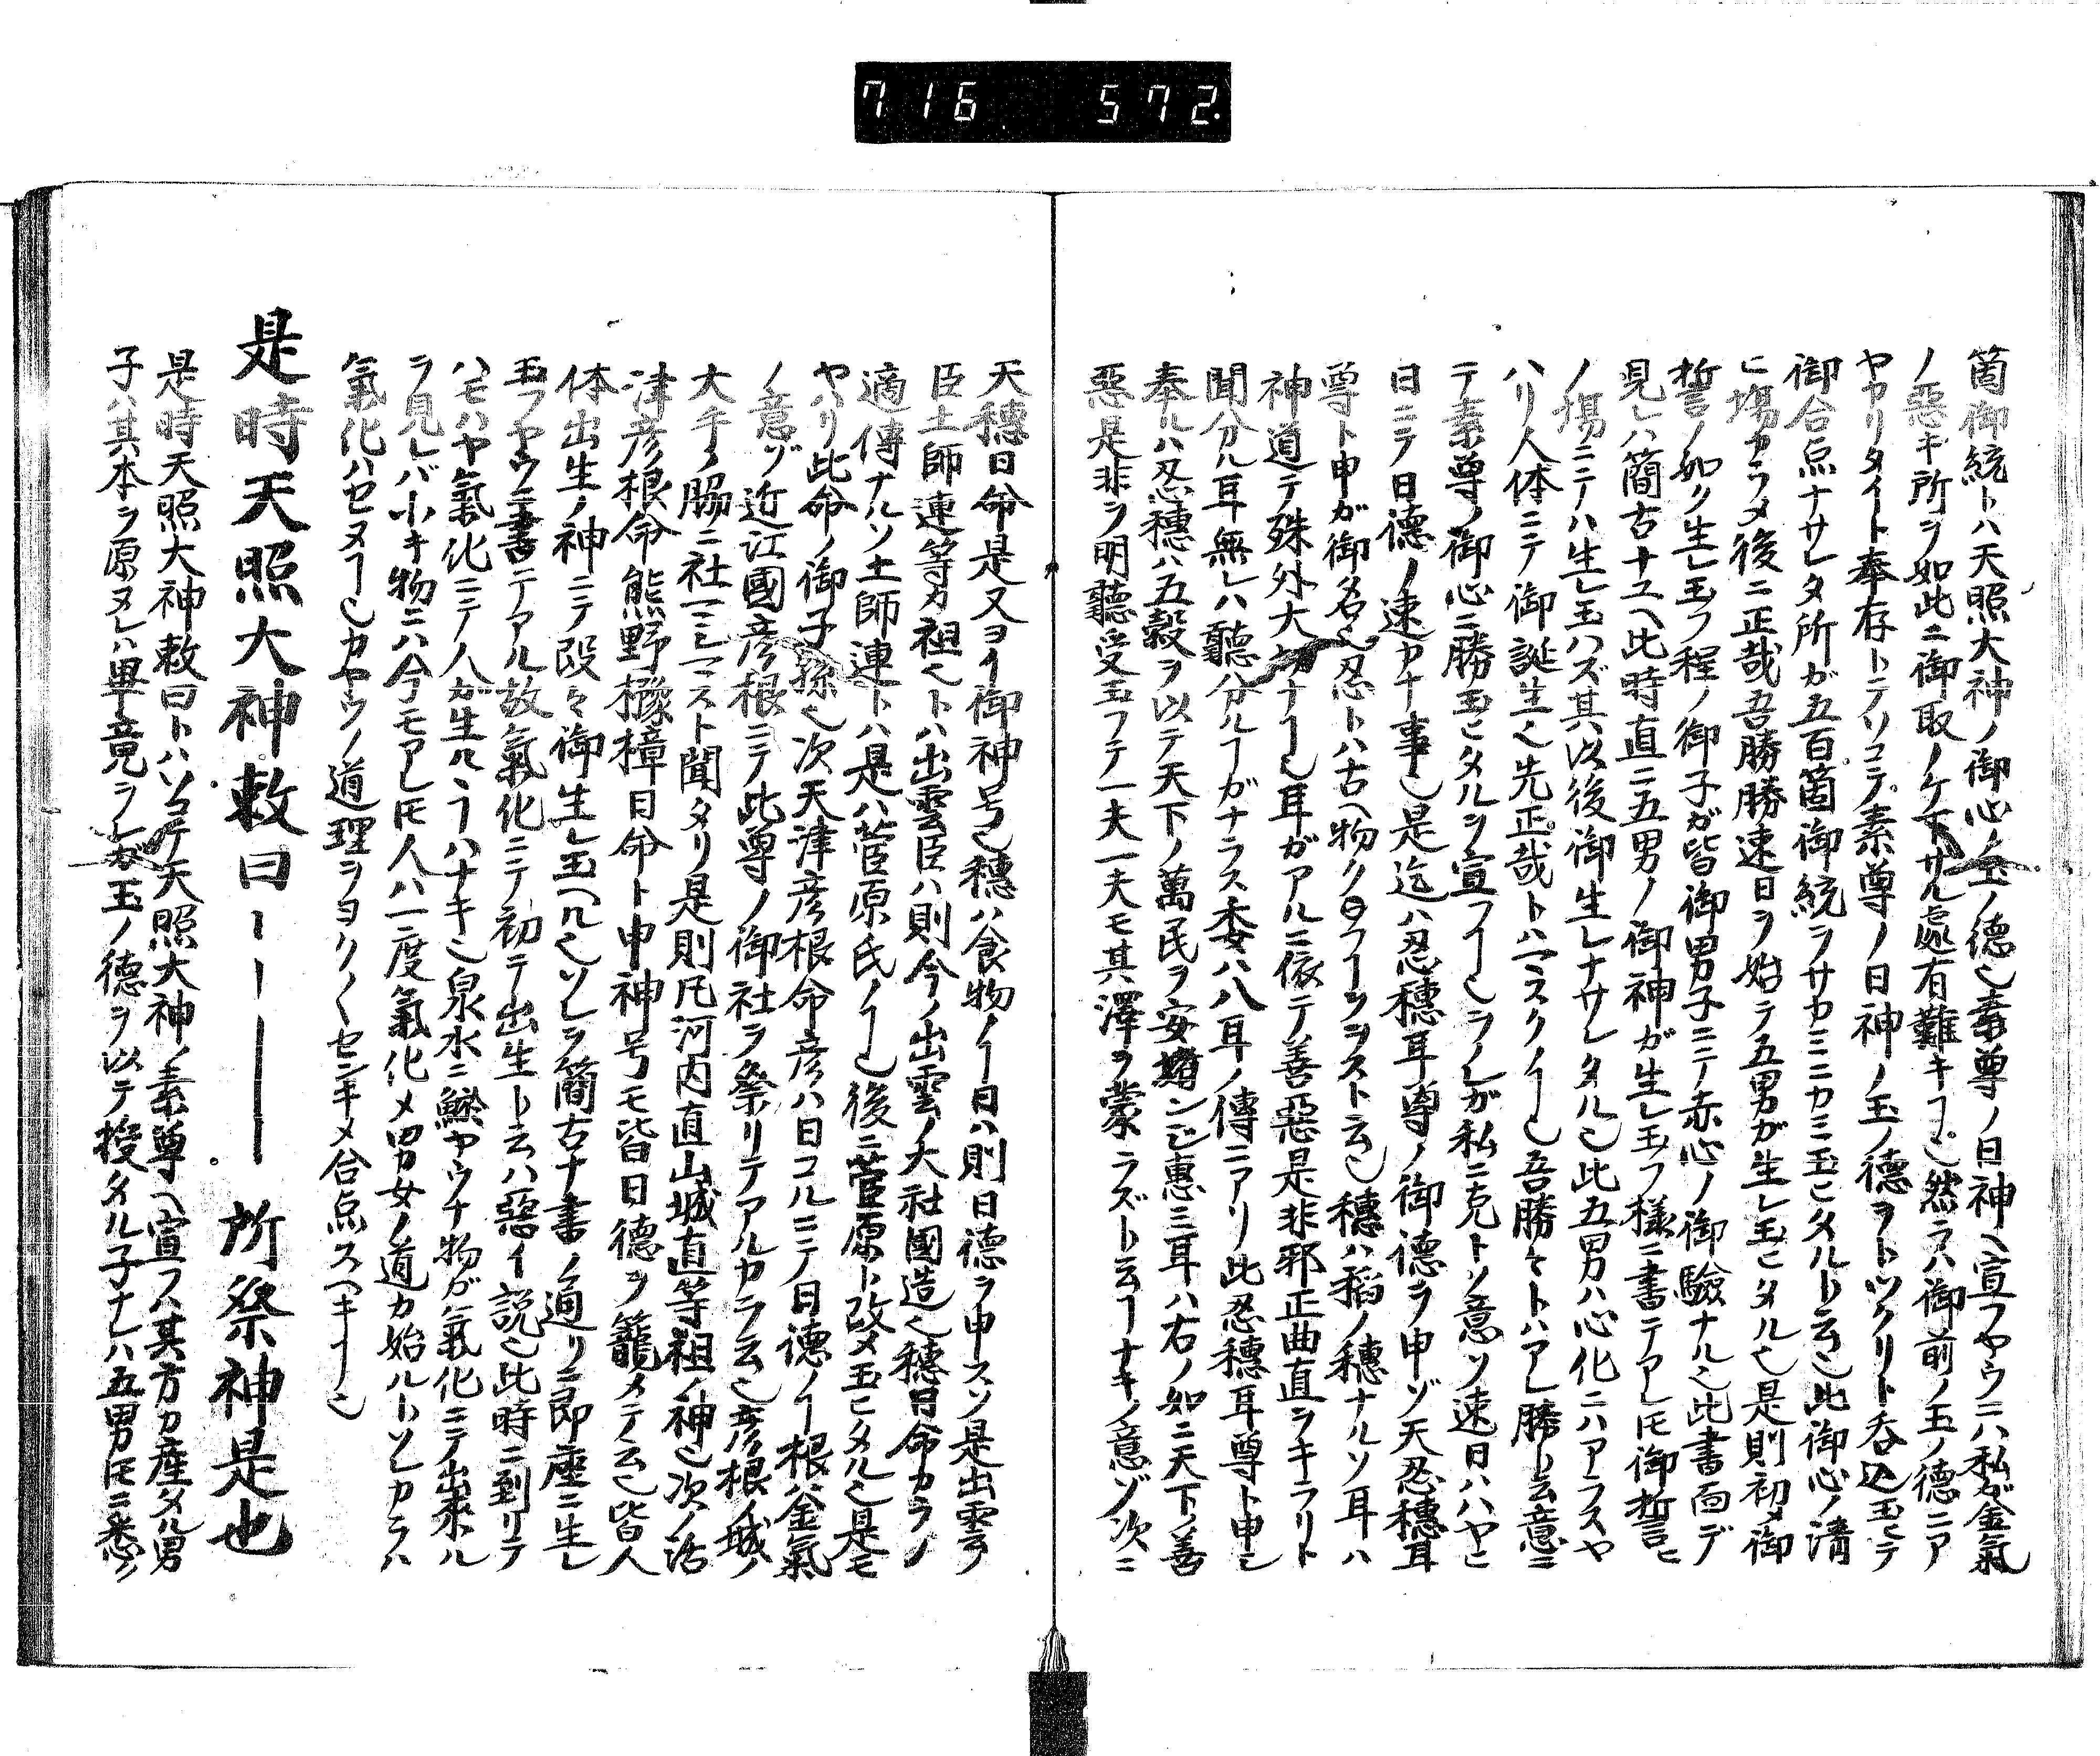 716 572.
箇御統トハ天照大神ノ御心ノ玉ノ徳也素尊ノ日神ヘ宣フヤウニハ私ガ金氣
ノ惡キ所ヲ如此ニ御取ノケ下サル處有難キヿ也然ラハ御前ノ玉ノ徳ニア
ヤカリタイト奉存トテソコデ素尊ノ日神ノ玉ノ徳ヲトツクリト呑込玉ヒテ
御合点ナサレタ所ガ五百箇御統ヲサカミニカミ玉ヒタルト云也此御心ノ清
ヒ場カラメ後ニ正哉吾勝勝速日ヲ始テ五男ガ生レ玉ヒタル也是則初メ御
誓ノ如ク生レ玉フ程ノ御子ガ皆御男子ニテ赤心ノ御驗ナル也此書面デ
見レハ簡古ナユヘ此時直ニ五男ノ御神ガ生レ玉フ様ニ書テアレ𪜈御誓ヒ
ノ場ニテハ生レ玉ハズ其以後御生レナサレタル也此五男ハ心化ニハアラスヤ
ハリ人体ニテ御誕生也先正哉トハマスクノヿ也吾勝々トハアレ勝ト云意ニ
テ素尊ノ御心ニ勝玉ヒタルヲ宣フヿ也ヲノレガ私ニ克トノ意ソ速日ハハヤヒ
日ニテ日徳ノ速カナ事也是迄ハ忍穗耳尊ノ御徳ヲ申ゾ天忍穗耳
尊ト申ガ御名也忍トハ古ヘ物クフヿヲヲスト云也穗ハ稻ノ穗ナルソ耳ハ
神道テ殊外大切ナヿ也耳ガアルニ依テ善惡是非邪正曲直ラキラリト
聞分ル耳無レハ聽分ルヿガナラス委ハ八耳ノ傳ニアリ此忍穗耳尊ト申シ
奉ルハ忍穗ハ五穀ヲ以テ天下ノ萬民ヲ安堵ンジ惠ミ耳ハ右ノ如ニ天下ノ善
惡是非ヲ明聽受玉フテ一夫一夫モ其澤ヲ蒙ラズト云ヿナキノ意ゾ次ニ
天穗日命是又ヨイ御神号也穗ハ食物ノヿ日ハ則日徳ヲ申スソ是出雲
臣土師連等カ祖也トハ出雲臣ハ則今ノ出雲ノ大社國造也穗日命カラノ
適傳ナルソ土師連トハ是ハ菅原氏ノヿ也後ニ菅原ト改メ玉ヒタル也是モ
ヤハリ此命ノ御子孫也次天津彦根命彦ハ日コルニテ日徳ノヿ根ハ金氣
ノ意ゾ近江國彦根ニテ此尊ノ御社ヲ祭リテアルカラ云也彦根ノ城ノ
大手ノ脇ニ社マシマスト聞タリ是則凡河内直山城直等祖ノ神也次ノ活
津彦根命熊野櫲樟日命ト申神号モ皆日徳ヲ籠メテ云也皆人
体出生ノ神ニテ段々御生レ玉ヘル也ソレヲ簡古ナ書ノ通リニ即座ニ生レ
玉フヤウニ書テアル故氣化ニテ初テ出生ト云ハ惡イ説也此時ニ到リテ
ハモハヤ氣化ニテ人ガ生ルヽヿハナキ也泉水ニ鯲ヤウナ物ガ氣化ニテ出來ル
ヲ見レバ小キ物ニハ今モアレ𪜈人ハ一度氣化メ男女ノ道カ始ルトソレカラハ
氣化ハセヌヿ也カヤウノ道理ヲヨク〱センキメ合点スヘキヿ也
是時天照大神敕曰ーーー 所祭神是也
是時天照大神敕曰トハソコデ天照大神ノ素尊ヘ宣フハ其方カ産タル男
子ハ其本ヲ原ヌレハ畢竟ヲレガ玉ノ徳ヲ以テ授タル子ナレハ五男𪜈ニ悉ク